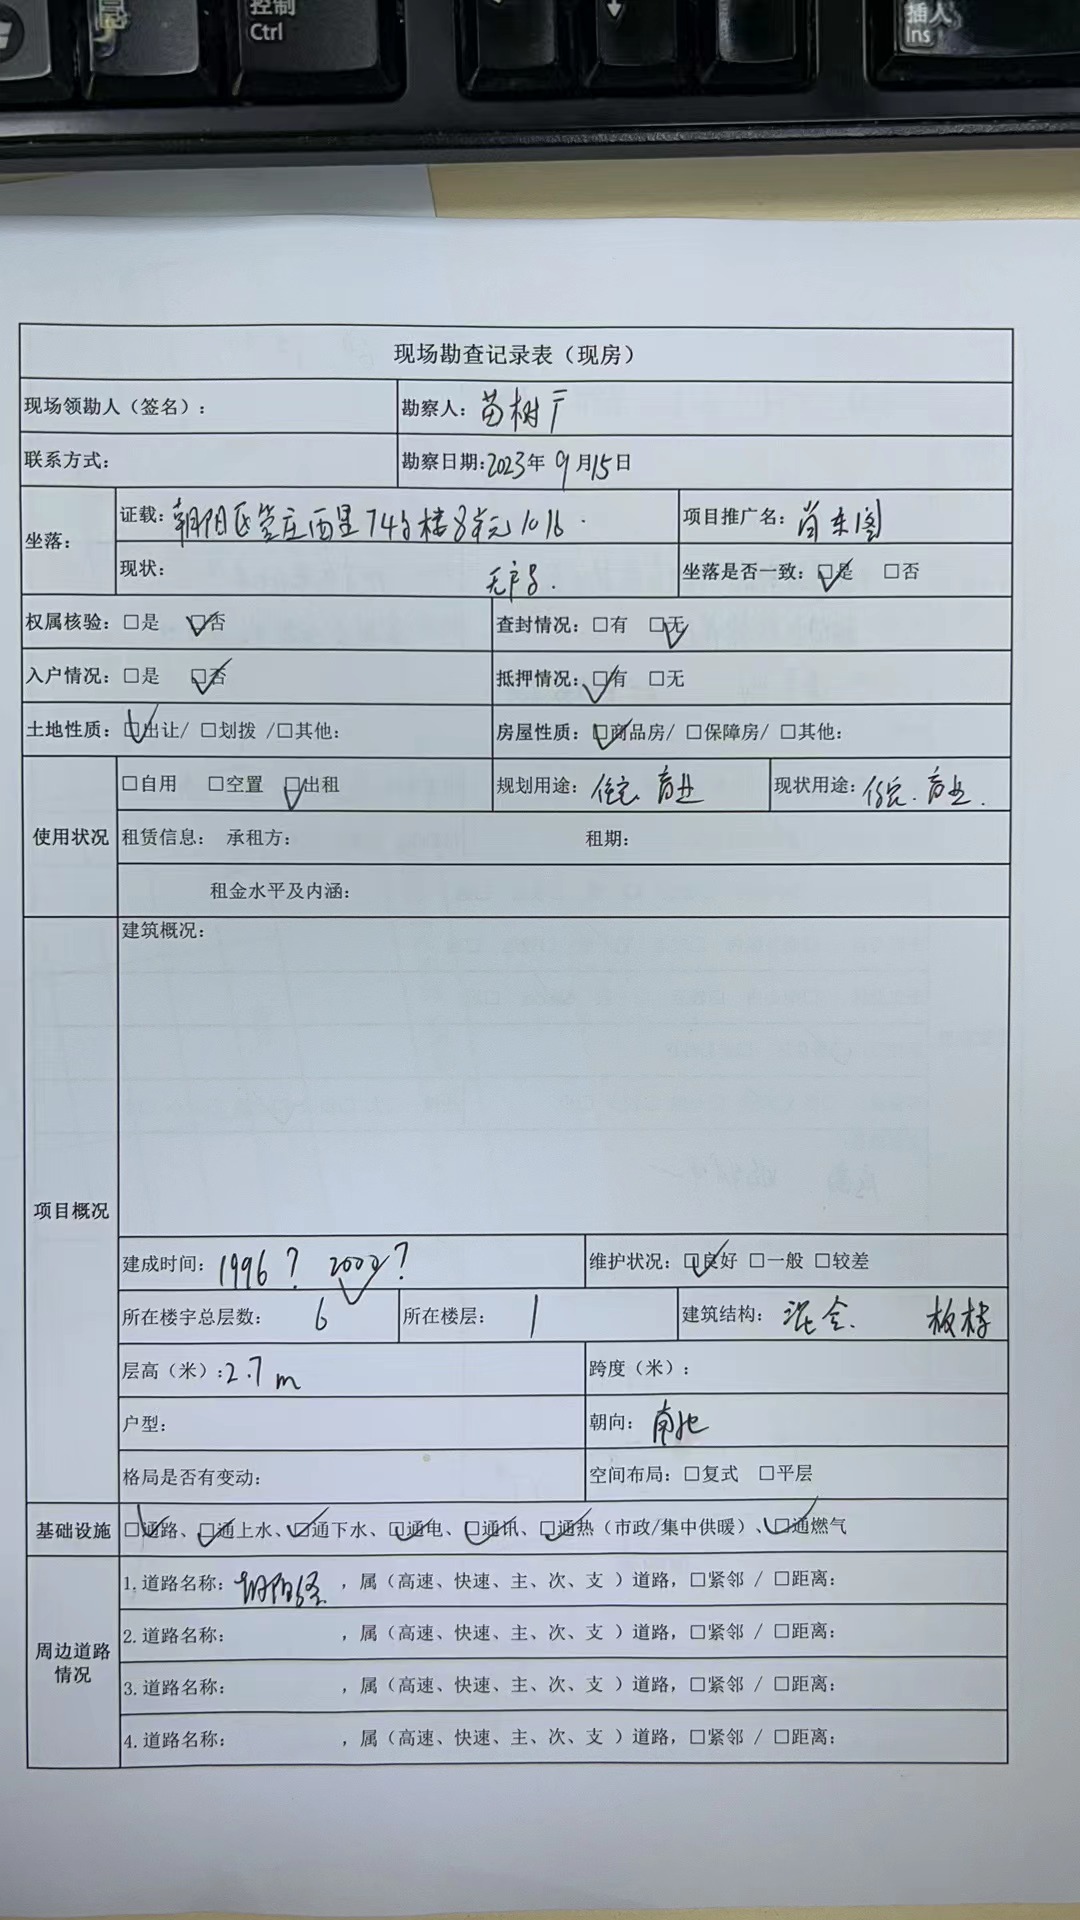 控制
Ctrl
插入
Ins
现场勘查记录表（现房）
现场领勘人（签名）：
勘察人：苗树
联系方式：
勘察日期：2023年 9月15日
坐落：
证载：朝阳区管庄西里74号楼8单元1016.
项目推广名：
现状：无户号.
坐落是否一致：☑是 □否
权属核验：□是 ☑否
查封情况：□有 ☑无
入户情况：□是 ☑否
抵押情况：☑有 □无
土地性质：☑出让/ □划拨 /□其他：
房屋性质：☑商品房/ □保障房/ □其他：
使用状况
□自用 □空置 ☑出租
规划用途：住宅、商业
现状用途：住宅.商业.
租赁信息： 承租方： 租期：
租金水平及内涵：
项目概况
建筑概况：
建成时间：1996？ 2002？
维护状况：☑良好 □一般 □较差
所在楼宇总层数：6
所在楼层：1
建筑结构：混合. 板楼
层高（米）:2.7m
跨度（米）：
户型：
朝向：南北
格局是否有变动：
空间布局：□复式 □平层
基础设施
☑通路、☑通上水、☑通下水、☑通电、☑通讯、☑通热（市政/集中供暖）、☑通燃气
周边道路情况
1.道路名称：朝阳路，属（高速、快速、主、次、支 ）道路，□紧邻 / □距离：
2.道路名称： ，属（高速、快速、主、次、支 ）道路，□紧邻 / □距离：
3.道路名称： ，属（高速、快速、主、次、支 ）道路，□紧邻 / □距离：
4.道路名称： ，属（高速、快速、主、次、支 ）道路，□紧邻 / □距离：